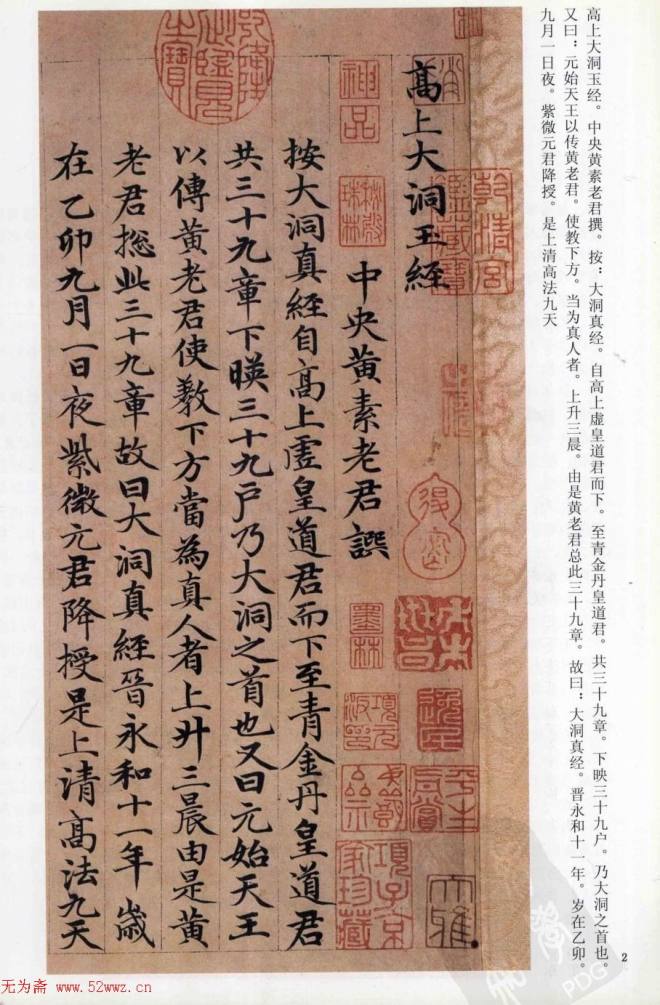 高上大洞玉经。中央黄素老君撰。按：大洞真经。自高上虚皇道君而下。至青金丹皇道君。共三十九章。下映三十九户。乃大洞之首也。
又曰：元始天王以传黄老君。使教下方。当为真人者。上升三晨。由是黄老君总此三十九章。故曰：大洞真经。晋永和十一年。岁在乙卯。
九月一日夜。紫微元君降授。是上清高法九天
乾清宫鉴藏宝
高上大洞玉經
中央黄素老君譔
按大洞真經自高上虚皇道君而下至青金丹皇道君
共三十九章下暎三十九户乃大洞之首也又曰元始天王
以傳黄老君使教下方當為真人者上升三晨由是黄
老君揔此三十九章故曰大洞真經晉永和十一年歲
在乙卯九月一日夜紫微元君降授是上清高法九天
乾隆御覽之寶
神品
墨林
逸民
平生真賞
項子京家珍藏
大雅
2
无为斋 www.52wwz.cn
PDG